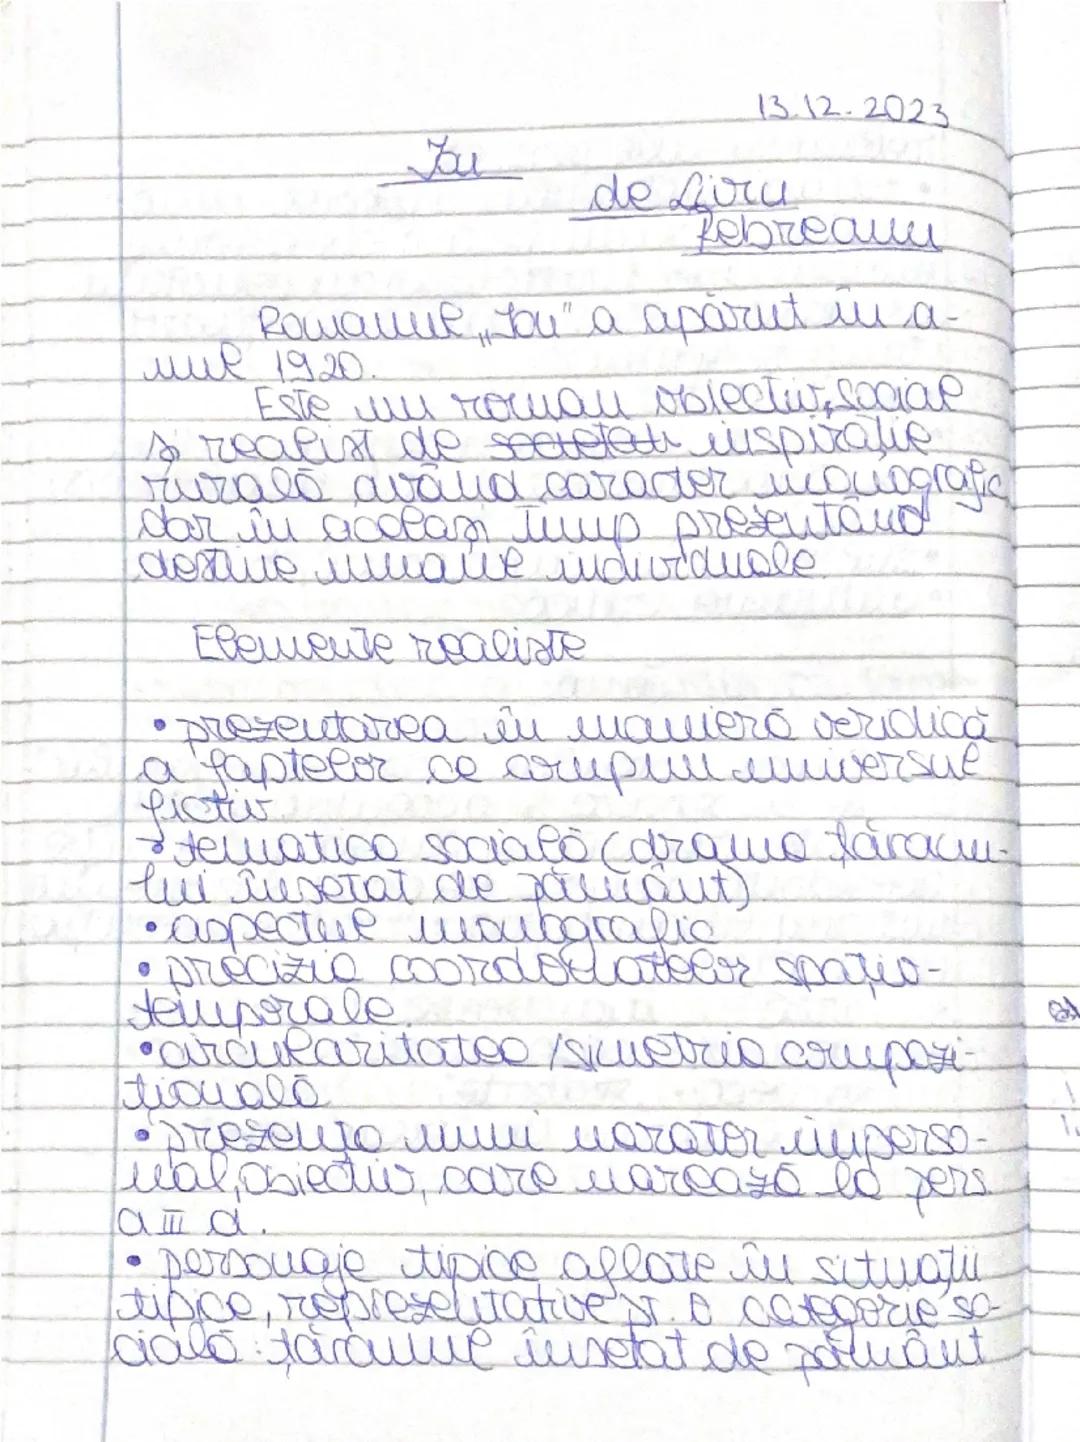 13.12.2023
Ion
de Liviu
Rebreanu
Romanul „Ion" a apărut în a-
nul 1920.
Este un roman obiectiv, social
și realist de inspirație
rurală având caracter monografic
dar în același timp prezentând
destine umane individuale
Elemente realiste
• prezentarea în manieră veridică
a faptelor ce compun universul
fictiv
• tematica socială (drama țăranu-
lui însetat de pământ)
• aspectul monografic
• precizia coordonatelor spațio-
temporale.
• circularitatea /simetria compozi-
țională
• prezența unui narator imperso-
nal, obiectiv, care narează la pers
a III a.
• personaje tipice aflate în situații
tipice, reprezentative pt. o categorie so-
cială: țăranul însetat de pământ